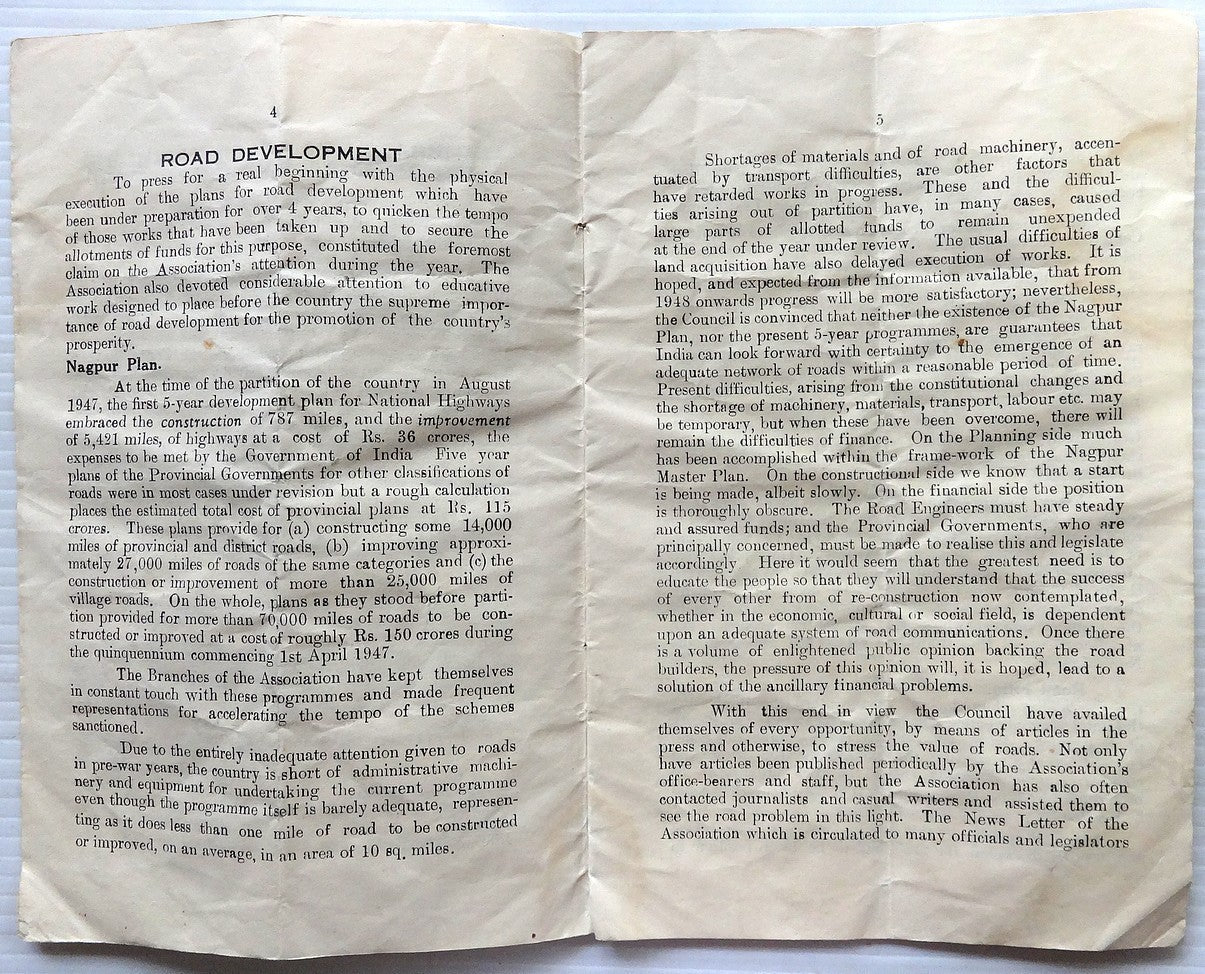 4
ROAD DEVELOPMENT
To press for a real beginning with the physical
execution of the plans for road development which have
been under preparation for over 4 years, to quicken the tempo
of those works that have been taken up and to secure the
allotments of funds for this purpose, constituted the foremost
claim on the Association's attention during the year. The
Association also devoted considerable attention to educative
work designed to place before the country the supreme impor-
tance of road development for the promotion of the country's
prosperity.
Nagpur Plan.
At the time of the partition of the country in August
1947, the first 5-year development plan for National Highways
embraced the construction of 787 miles, and the improvement
of 5,421 miles, of highways at a cost of Rs. 36 crores, the
expenses to be met by the Government of India Five year
plans of the Provincial Governments for other classifications of
roads were in most cases under revision but a rough calculation
places the estimated total cost of provincial plans at Rs. 115
crores. These plans provide for (a) constructing some 14,000
miles of provincial and district roads, (b) improving approxi-
mately 27,000 miles of roads of the same categories and (c) the
construction or improvement of more than 25,000 miles of
village roads. On the whole, plans as they stood before parti-
tion provided for more than 70,000 miles of roads to be con-
structed or improved at a cost of roughly Rs. 150 crores during
the quinquennium commencing 1st April 1947.
The Branches of the Association have kept themselves
in constant touch with these programmes and made frequent
representations for accelerating the tempo of the schemes
sanctioned.
Due to the entirely inadequate attention given to roads
in pre-war years, the country is short of administrative machi-
nery and equipment for undertaking the current programme
even though the programme itself is barely adequate, represen-
ting as it does less than one mile of road to be constructed
or improved, on an average, in an area of 10 sq. miles.
5
Shortages of materials and of road machinery, accen-
tuated by transport difficulties, are other factors that
have retarded works in progress. These and the difficul-
ties arising out of partition have, in many cases, caused
large parts of allotted funds to remain unexpended
at the end of the year under review. The usual difficulties of
land acquisition have also delayed execution of works. It is
hoped, and expected from the information available, that from
1948 onwards progress will be more satisfactory; nevertheless,
the Council is convinced that neither the existence of the Nagpur
Plan, nor the present 5-year programmes, are guarantees that
India can look forward with certainty to the emergence of an
adequate network of roads within a reasonable period of time.
Present difficulties, arising from the constitutional changes and
the shortage of machinery, materials, transport, labour etc. may
be temporary, but when these have been overcome, there will
remain the difficulties of finance. On the Planning side much
has been accomplished within the frame-work of the Nagpur
Master Plan. On the constructional side we know that a start
is being made, albeit slowly. On the financial side the position
is thoroughly obscure. The Road Engineers must have steady
and assured funds; and the Provincial Governments, who are
principally concerned, must be made to realise this and legislate
accordingly. Here it would seem that the greatest need is to
educate the people so that they will understand that the success
of every other from of re-construction now contemplated,
whether in the economic, cultural or social field, is dependent
upon an adequate system of road communications. Once there
is a volume of enlightened public opinion backing the road
builders, the pressure of this opinion will, it is hoped, lead to a
solution of the ancillary financial problems.
With this end in view the Council have availed
themselves of every opportunity, by means of articles in the
press and otherwise, to stress the value of roads. Not only
have articles been published periodically by the Association's
office-bearers and staff, but the Association has also often
contacted journalists and casual writers and assisted them to
see the road problem in this light. The News Letter of the
Association which is circulated to many officials and legislators